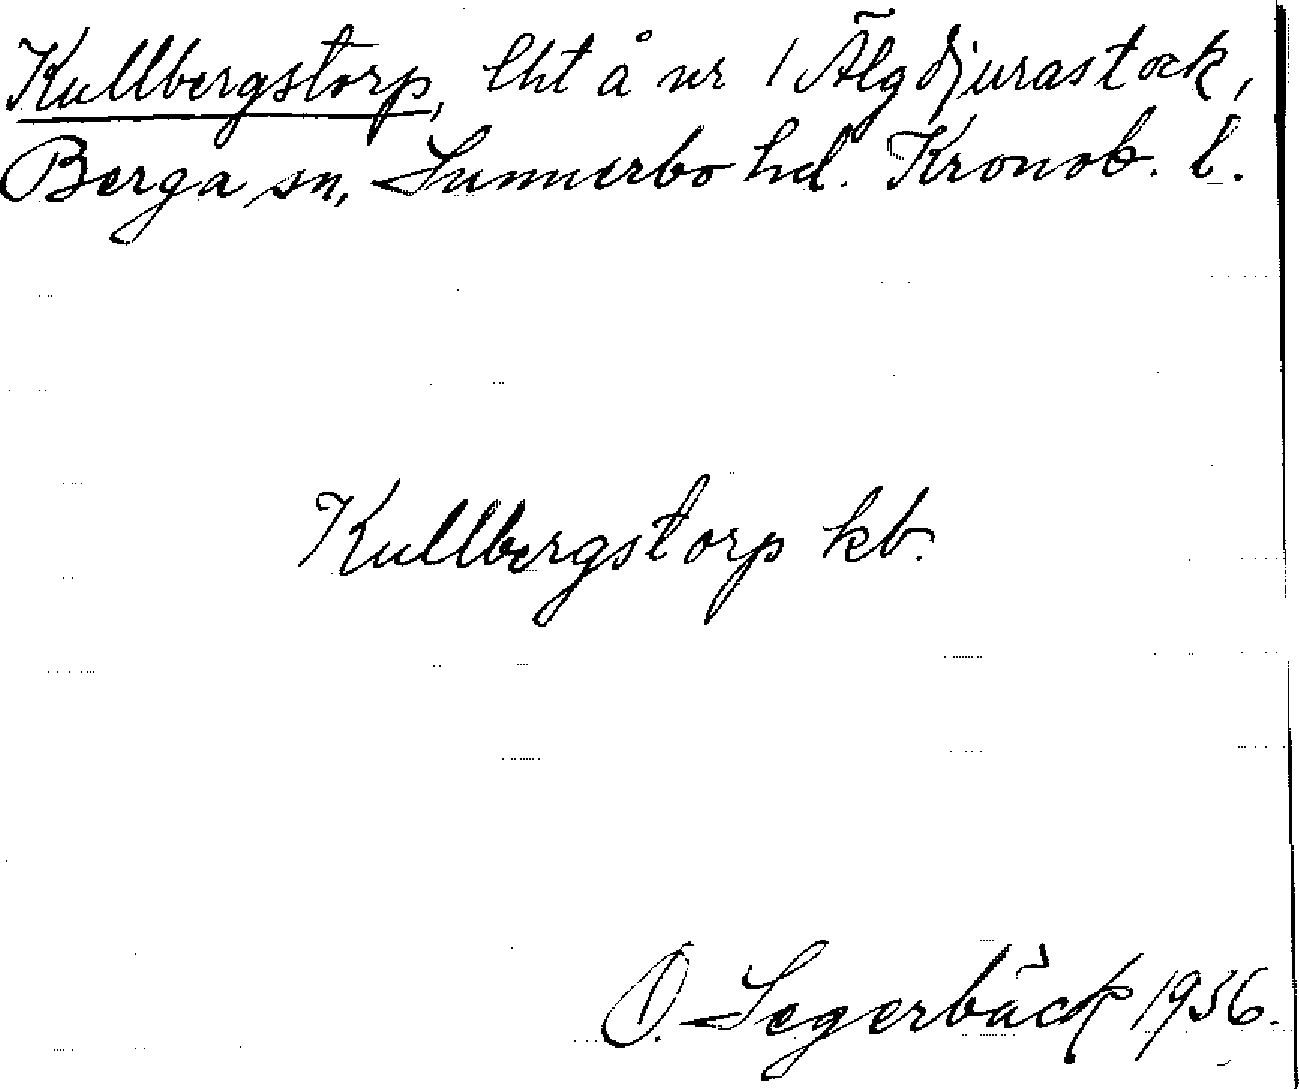 Kullbergstorp, lht å nr 1 Älgdjurastock,
Berga sn, Sunnerbo hd. Kronob. l.
Kullbergstorp kb.
O. Segerbäck 1936.